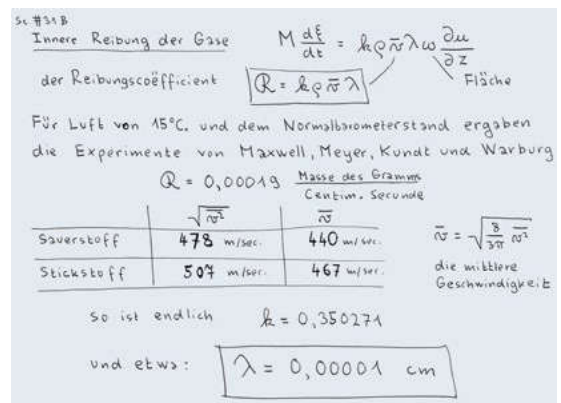 Sc #31B
Innere Reibung der Gase
M dξ/dt = kρv̅λω ∂u/∂z
Fläche
der Reibungscoëfficient R = kρv̅λ
Für Luft von 15°C. und dem Normalbarometerstand ergaben
die Experimente von Maxwell, Meyer, Kundt und Warburg
R = 0,00019 Masse des Gramms / Centim. Secunde
√v̅² v̅
Sauerstoff 478 m/sec. 440 m/sec.
Stickstoff 507 m/sec. 467 m/sec.
v̅ = √(8/3π v̅²)
die mittlere
Geschwindigkeit
so ist endlich k = 0,350271
und etwa: λ = 0,00001 cm